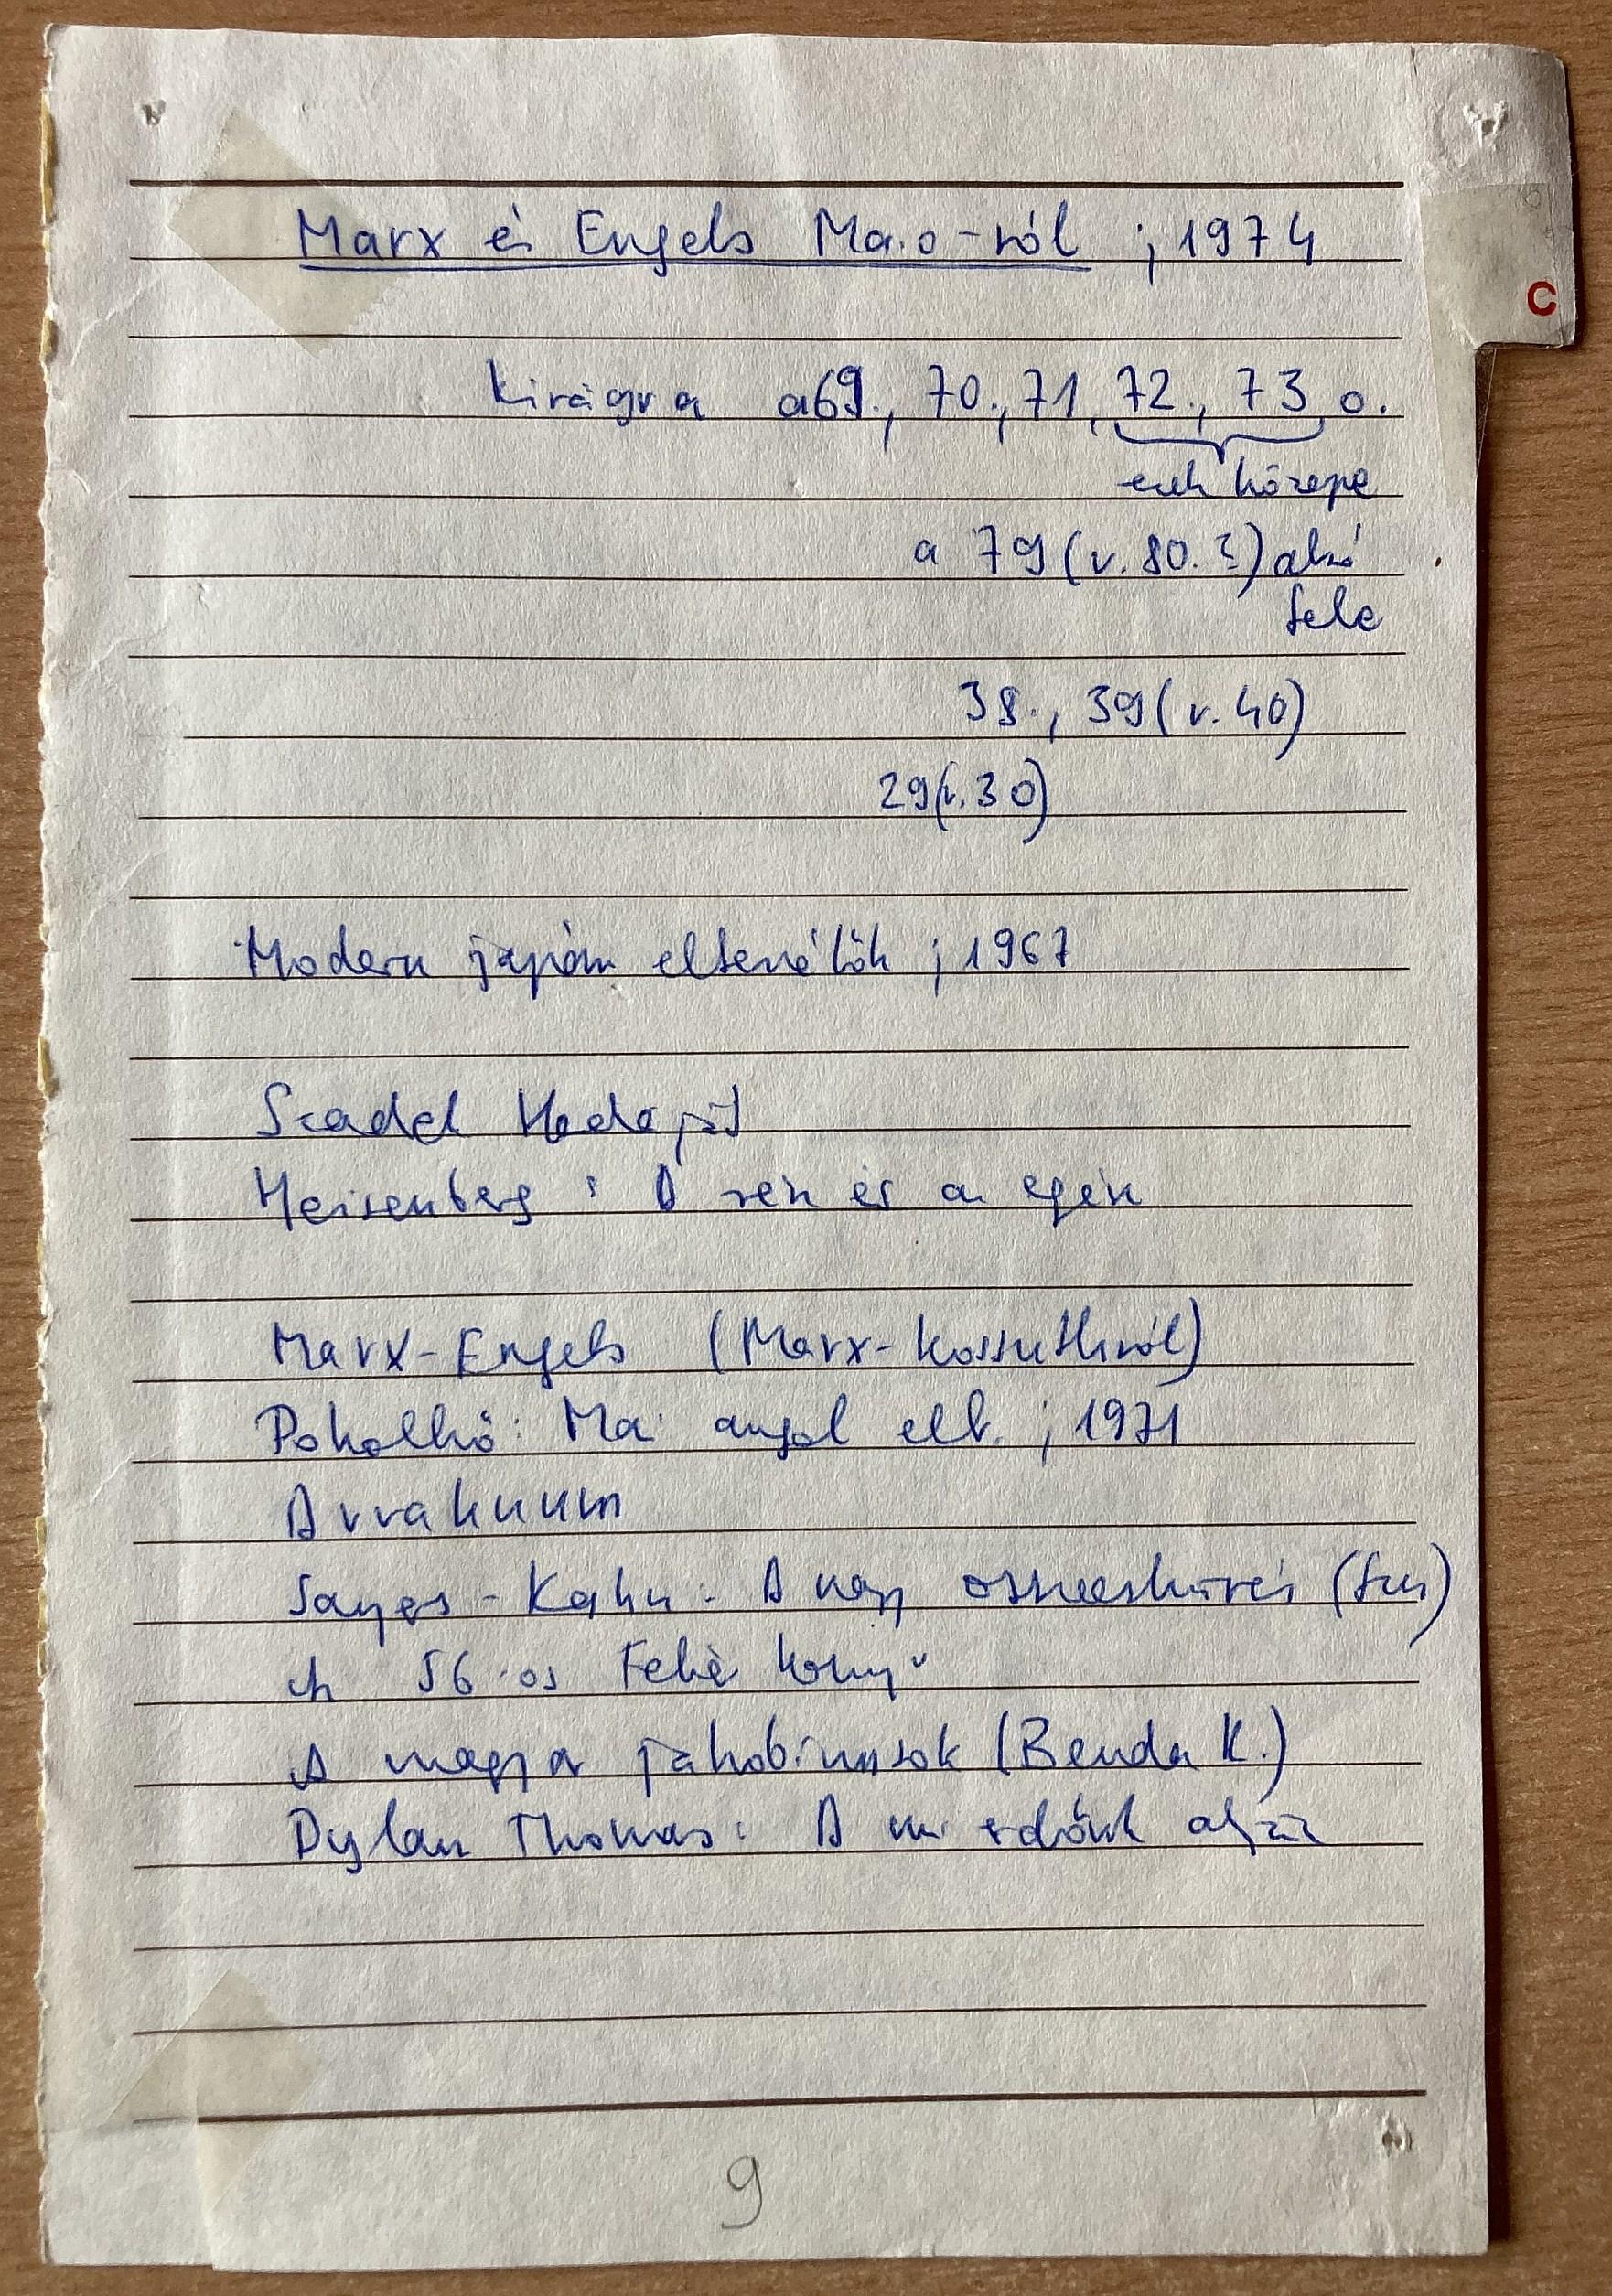 Marx és Engels Mao-ról ; 1974
C
kivágva a 69., 70., 71., 72., 73. o.
ezek közepe
a 79 (v. 80.?) alsó
fele
38., 39 (v. 40)
29 (v. 30)
Modern japán elbeszélők ; 1967
Szadek Hedajat
Heisenberg : A rész és az egész
Marx-Engels (Marx-Kossuthról)
Pokolkő: Mai angol elb. ; 1971
Avvakuum
Sayers - Kahn : A nagy összeesküvés
Az 56-os Fehér könyv
A magyar jakobinusok (Benda K.)
Dylan Thomas : A mi erdőnk alján
9